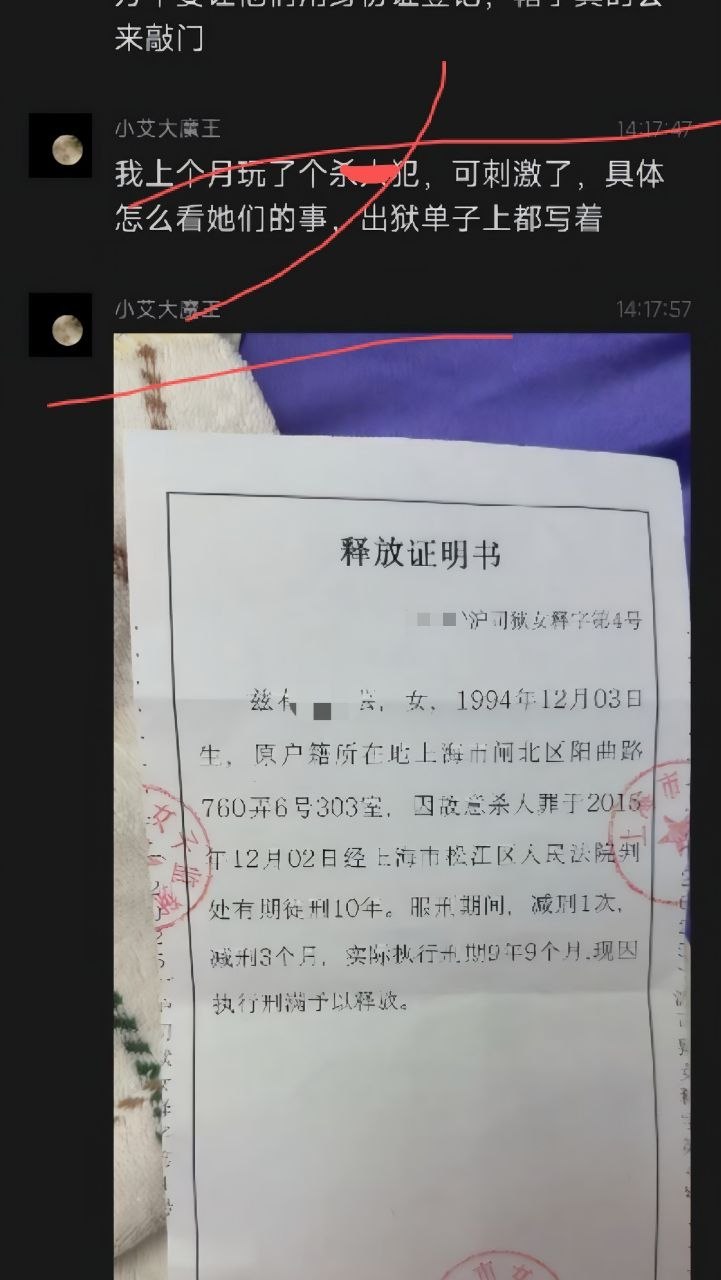 来敲门
小艾大魔王
14:17:47
我上个月玩了个杀人犯，可刺激了，具体
怎么看她们的事，出狱单子上都写着
小艾大魔王
14:17:57
释放证明书
沪司狱女释字第4号
兹有 女，1994年12月03日
生，原户籍所在地上海市闸北区阳曲路
760弄6号303室，因故意杀人罪于2015
年12月02日经上海市松江区人民法院判
处有期徒刑10年。服刑期间，减刑1次，
减刑3个月，实际执行刑期9年9个月.现因
执行刑满予以释放。